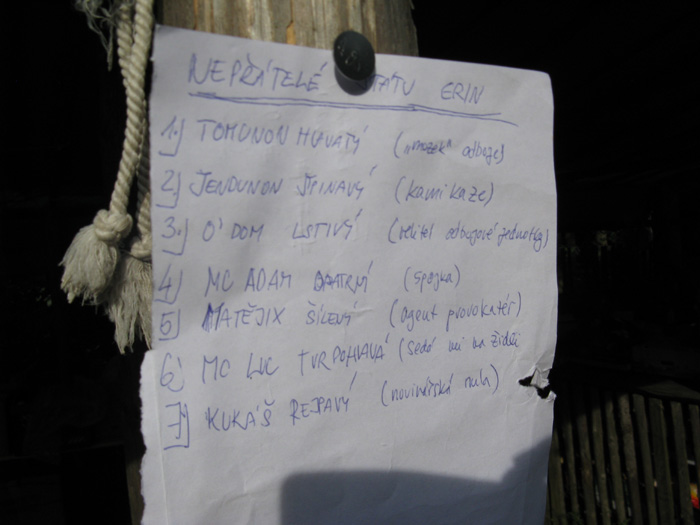 NEPŘÁTELÉ STÁTU ERIN
1.) TOMUNON HUBATÝ („mozek" odboje)
2.) JENDUNON ŠPINAVÝ (kamikaze)
3.) O'DOM LSTIVÝ (velitel odbojové jednotky)
4.) MC ADAM (spojka)
5.) MATĚJIX ŠÍLENÝ (agent provokatér)
6.) MC LUC TVRDOHLAVÁ (sedí mi na židli
7.) KUKÁŠ REZAVÝ (novinářská nula)